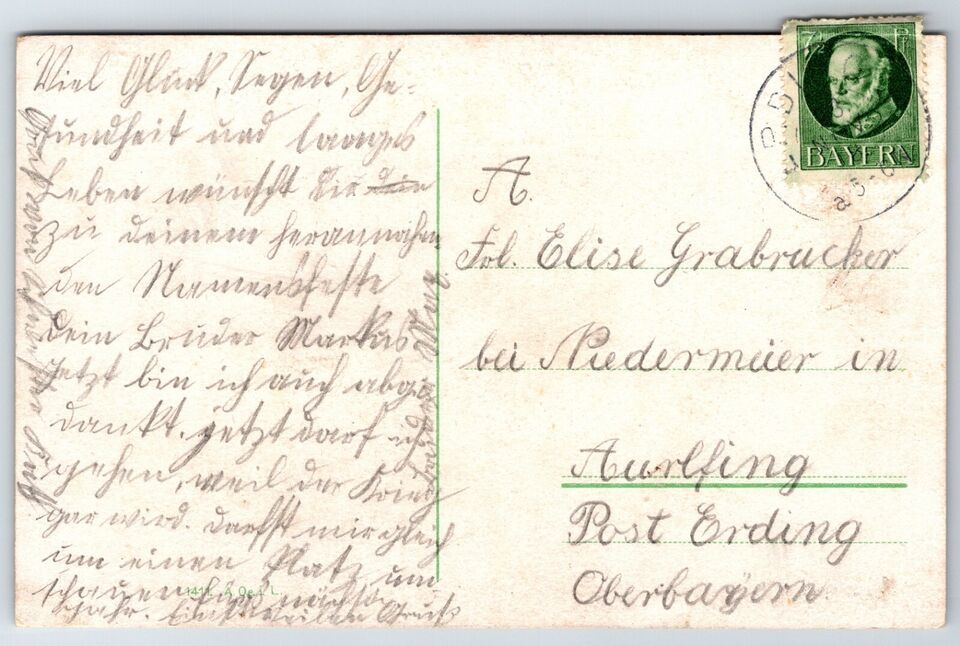 Viel Glück, Segen, Ge-
sundheit und langes
Leben wünscht Dir
zu deinem herannahen
den Namensfeste
Dein Bruder Markus
Jetzt bin ich auch abge
dankt. jetzt darf ich
gehen, weil der Krieg
gar wird. Darfst mir gleich
um einen Platz um
schauen für nächste
Jahr. Einstweilen Gruß
1411 A.
7½ Pf
BAYERN
A.
Frl. Elise Grabrucker
bei Niedermeier in
Aurlfing
Post Erding
Oberbayern